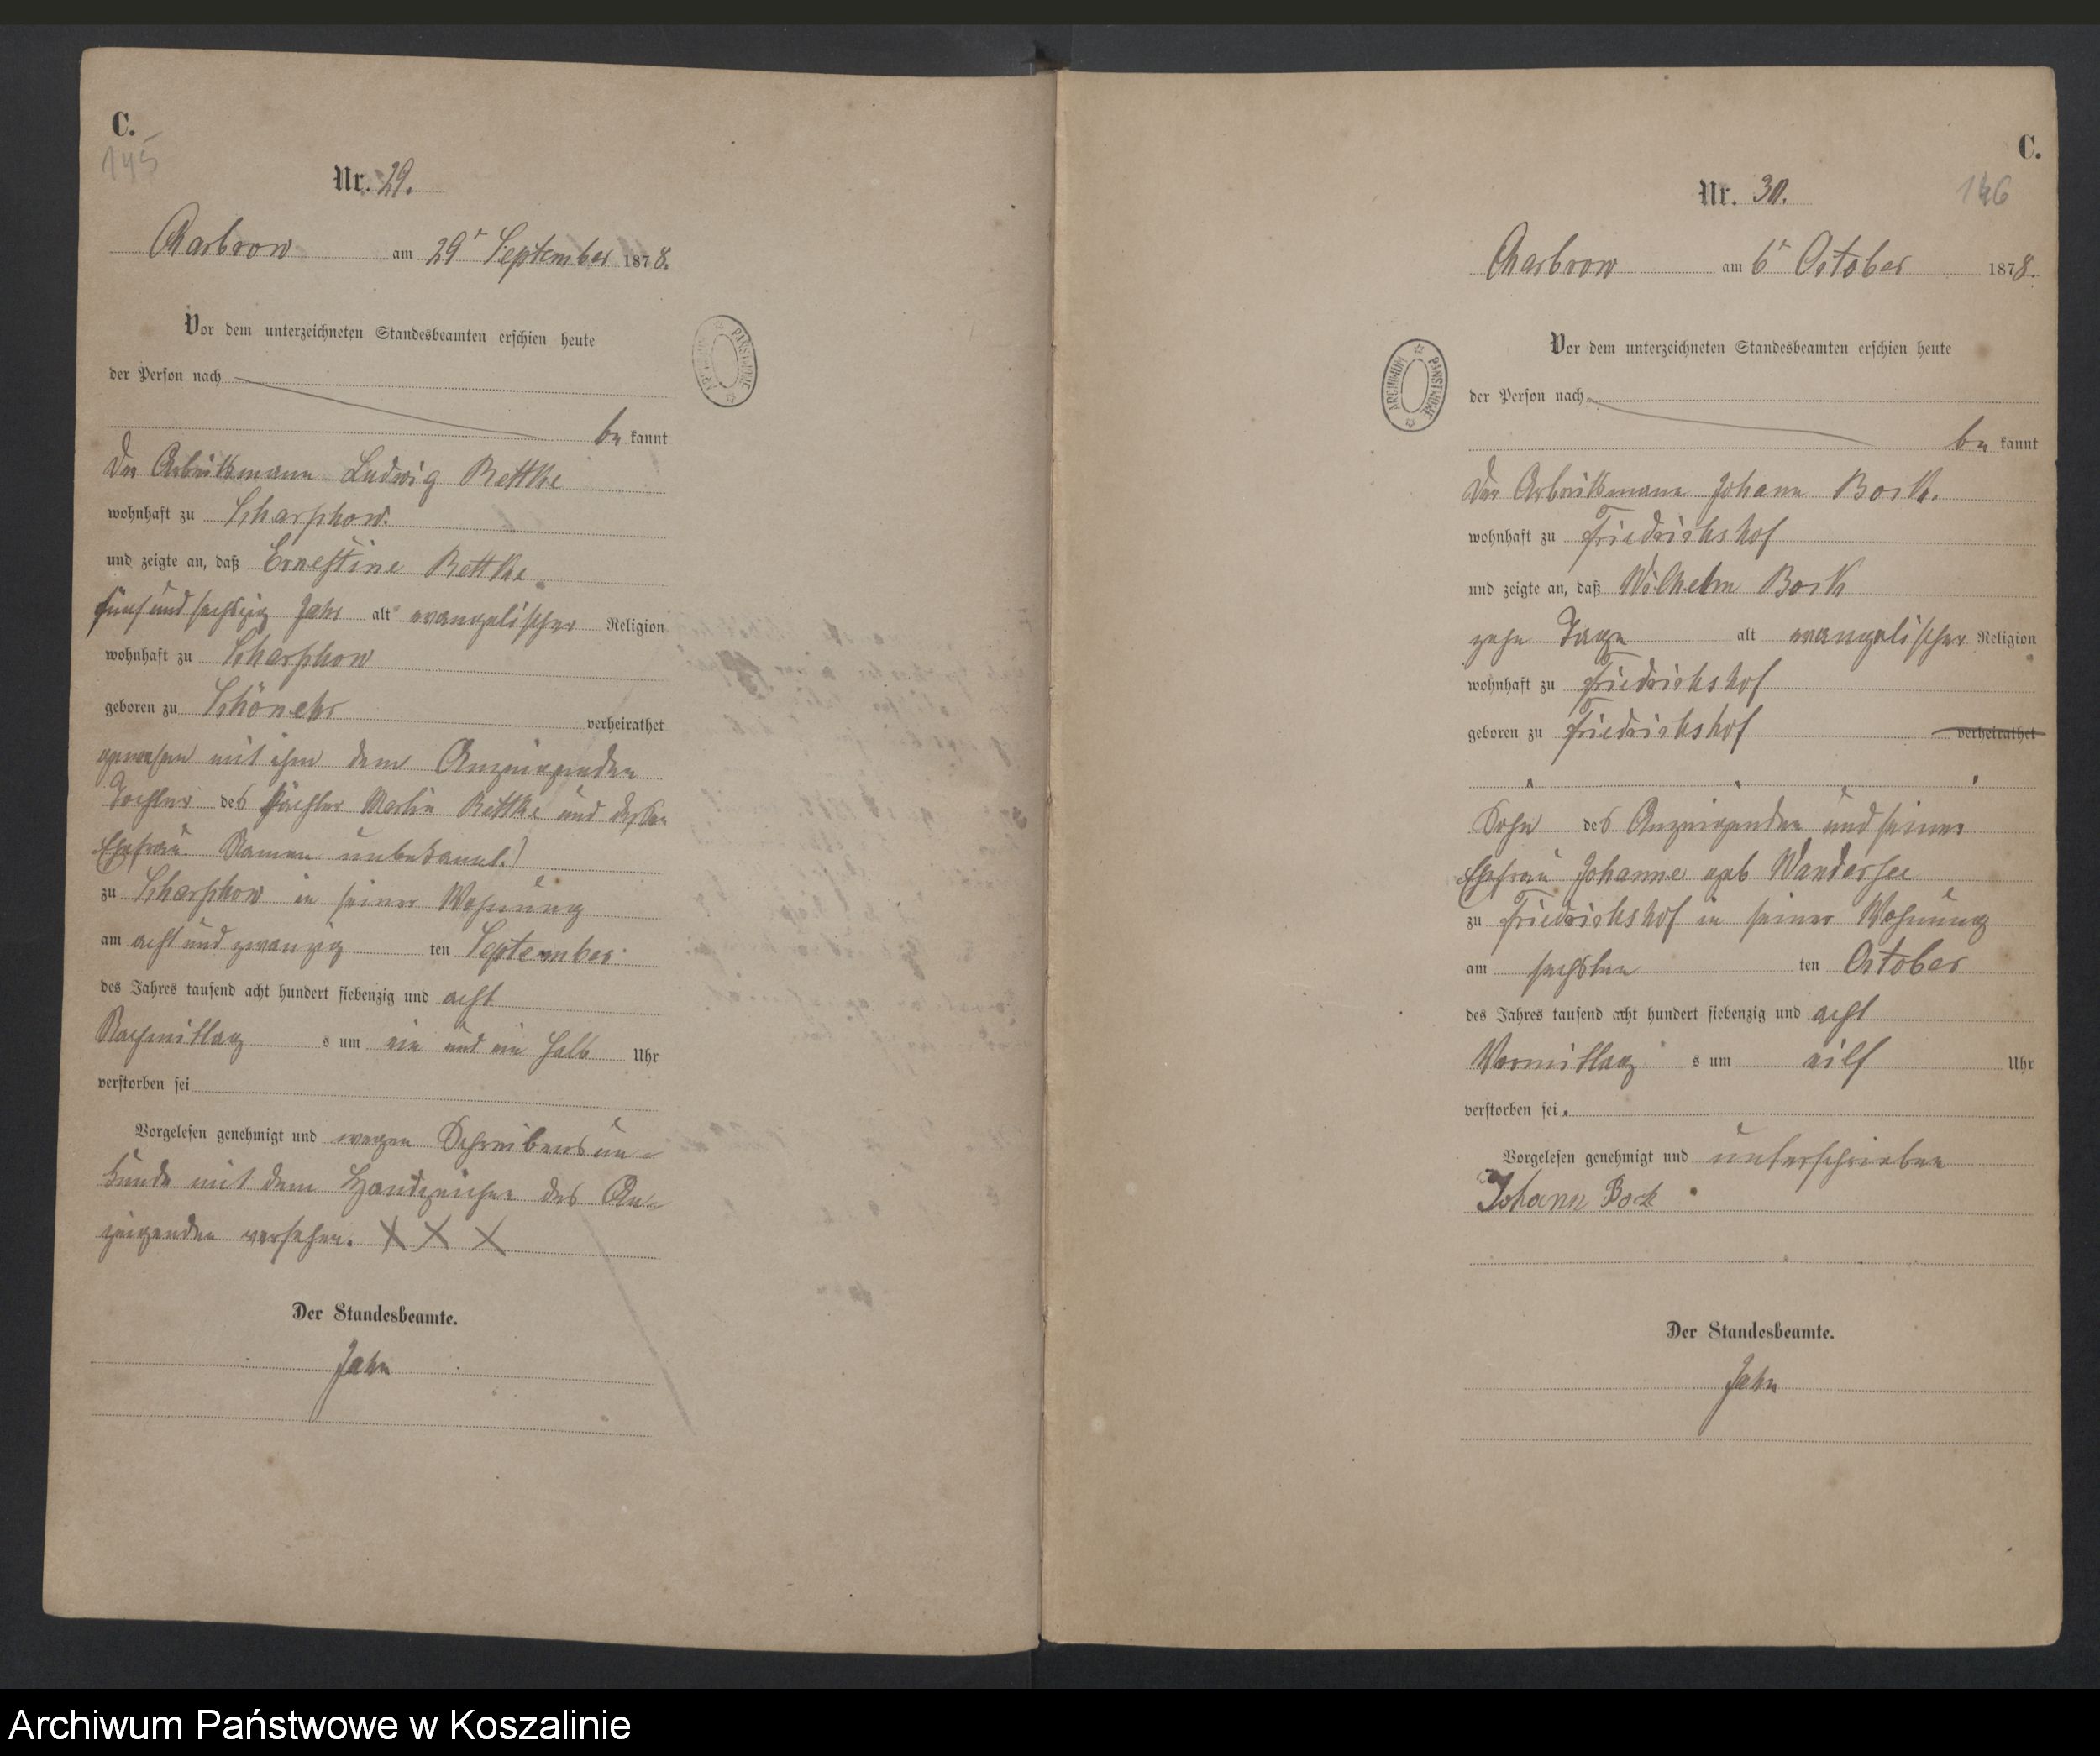 C.
145
Nr. 29.
Charbrow am 29t September 1878.
Vor dem unterzeichneten Standesbeamten erschien heute
der Person nach
be kannt
Der Arbeitsmann Ludwig Rettke
wohnhaft zu Scharschow.
und zeigte an, daß Ernestine Rettke
fünf und sechszig Jahr alt evangelischer Religion
wohnhaft zu Scharschow
geboren zu Schönehr verheirathet
gewesen mit ihm dem Anzeigenden
Tochter des Pächter Martin Rettke und dessen
Ehefrau Namen unbekannt.)
zu Scharschow in seiner Wohnung
am acht und zwanzig ten September
des Jahres tausend acht hundert siebenzig und acht
Nachmittag s um ein und ein halb Uhr
verstorben sei
Vorgelesen genehmigt und wegen Schreibensun-
kunde mit dem Handzeichen des An-
zeigenden versehen. X X X
Der Standesbeamte.
Jahn
C.
146
Nr. 30.
Charbrow am 6t October 1878.
Vor dem unterzeichneten Standesbeamten erschien heute
der Person nach
be kannt
Der Arbeitsmann Johann Bock.
wohnhaft zu Friedrichshof
und zeigte an, daß Wilhelm Bock
zehn Tage alt evangelischer Religion
wohnhaft zu Friedrichshof
geboren zu Friedrichshof verheirathet
Sohn des Anzeigenden und seiner
Ehefrau Johanne geb Wandersee
zu Friedrichshof in seiner Wohnung
am sechsten ten October
des Jahres tausend acht hundert siebenzig und acht
Vormittag s um eilf Uhr
verstorben sei.
Vorgelesen genehmigt und unterschrieben
Johann Bock
Der Standesbeamte.
Jahn
ARCHIWUM PAŃSTWOWE
ARCHIWUM PAŃSTWOWE
Archiwum Państwowe w Koszalinie